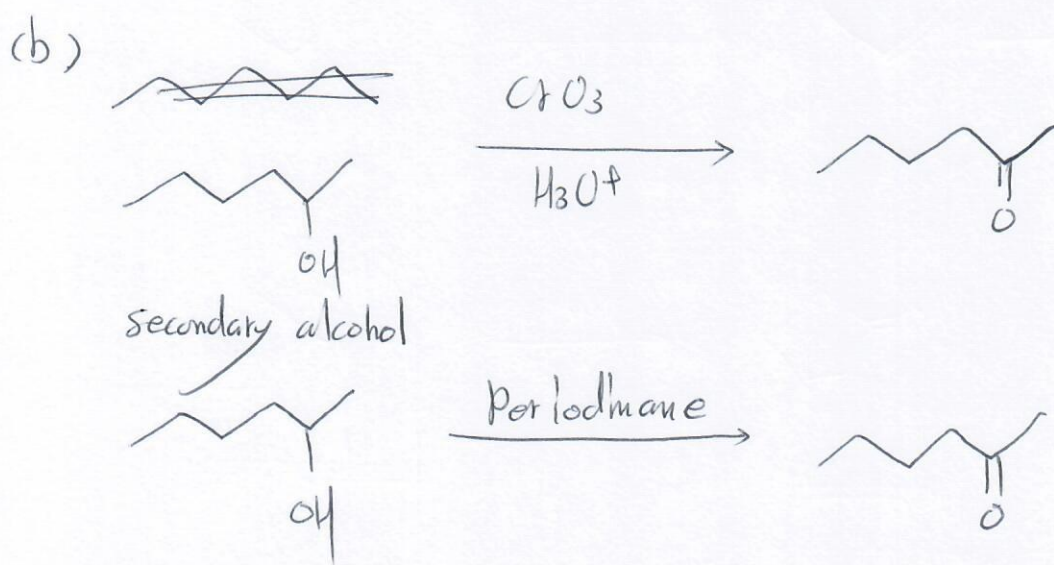 (b)
CrO3
H3O+
O
OH
secondary alcohol
Periodinane
OH
O